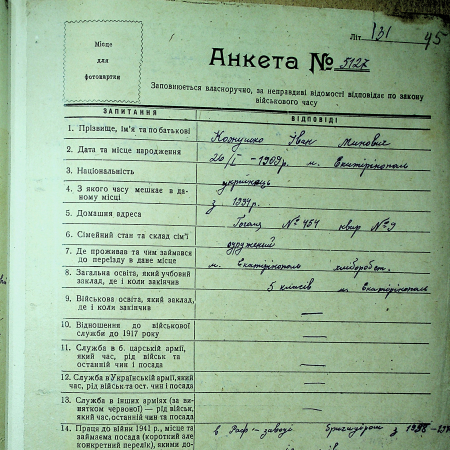 Літ 131 45
Місце
для
фотокартки
Анкета № 5127
Заповнюється власноручно, за неправдиві відомості відповідає по закону
військового часу
ЗАПИТАННЯ ВІДПОВІДІ
1. Прізвище, ім'я та по батькові Кожушко Іван Минович
2. Дата та місце народження 20/І - 1909 р. м. Екатерінополь
3. Національність українець
4. З якого часу мешкає в да-
ному місці з 1934 р.
5. Домашня адреса № 454 квар № 9
6. Сімейний стан та склад сім'ї одружений
7. Де проживав та чим займався
до переїзду в дане місце м. Екатерінополь хлібороб.
8. Загальна освіта, який учбовий
заклад, де і коли закінчив 5 класів м. Екатерінополь
9. Військова освіта, який заклад,
де і коли закінчив —
10. Відношення до військової
служби до 1917 року
11. Служба в б. царській армії,
який час, рід військ та
останній чин і посада —
12. Служба в Українській армії, який
час, рід військ та ост. чин і посада —
13. Служба в інших арміях (за ви-
нятком червоної) — рід військ,
який час, останній чин та посада —
14. Праця до війни 1941 р., місце та
займаєма посада (короткий але
конкретний перелік), якими до- в заводі бригадіром з